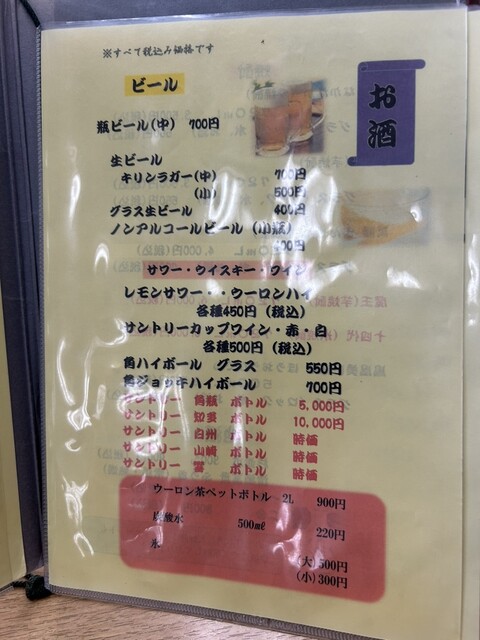 ※すべて税込み価格です
お酒
ビール
瓶ビール(中) 700円
生ビール
キリンラガー(中) 700円
(小) 500円
グラス生ビール 400円
ノンアルコールビール (小瓶)
400円
サワー・ウイスキー・ワイン
レモンサワー・・ウーロンハイ
各種450円 (税込)
サントリーカップワイン・赤・白
各種500円 (税込)
角ハイボール グラス 550円
角ジョッキハイボール 700円
サントリー 角瓶 ボトル 5,000円
サントリー 知多 ボトル 10,000円
サントリー 白州 ボトル 時価
サントリー 山崎 ボトル 時価
サントリー 響 ボトル 時価
ウーロン茶ペットボトル 2L 900円
炭酸水 500㎖ 220円
氷 (大)500円
(小)300円